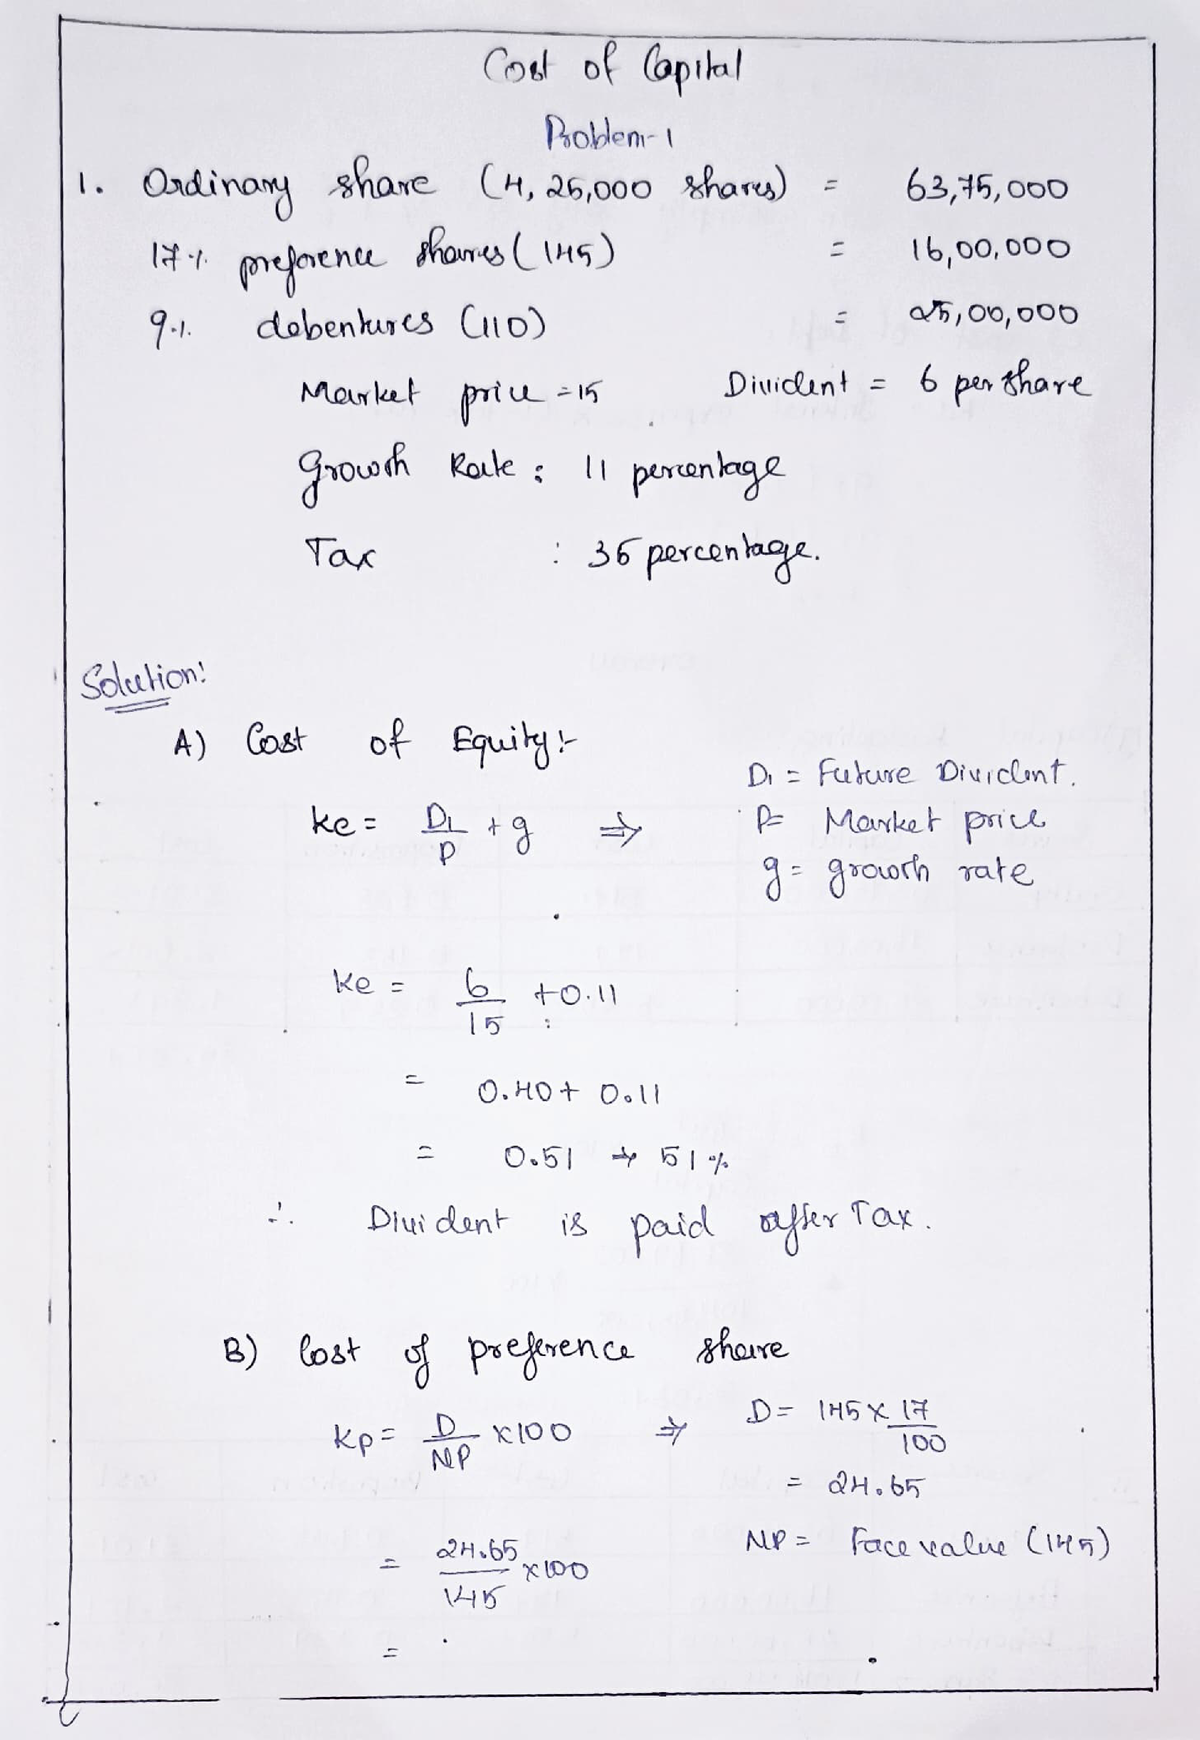 Cost of Capital
Problem-1
1. Ordinary share (4,25,000 shares) = 63,75,000
17% preference shares (145) = 16,00,000
9% debentures (110) = 25,00,000
Market price = 15 Divident = 6 per share
Growth Rate : 11 percentage
Tax : 35 percentage.
Solution:
A) Cost of Equity:-
D1 = Future Divident.
ke = D1/P + g ⇒ P= Market price
g = growth rate
ke = 6/15 + 0.11
= 0.40 + 0.11
= 0.51 → 51%
∴ Divident is paid after Tax.
B) Cost of preference share
kp = D/NP ×100 ⇒ D = 145 × 17/100
= 24.65
= 24.65/145 ×100 NP = Face value (145)
=